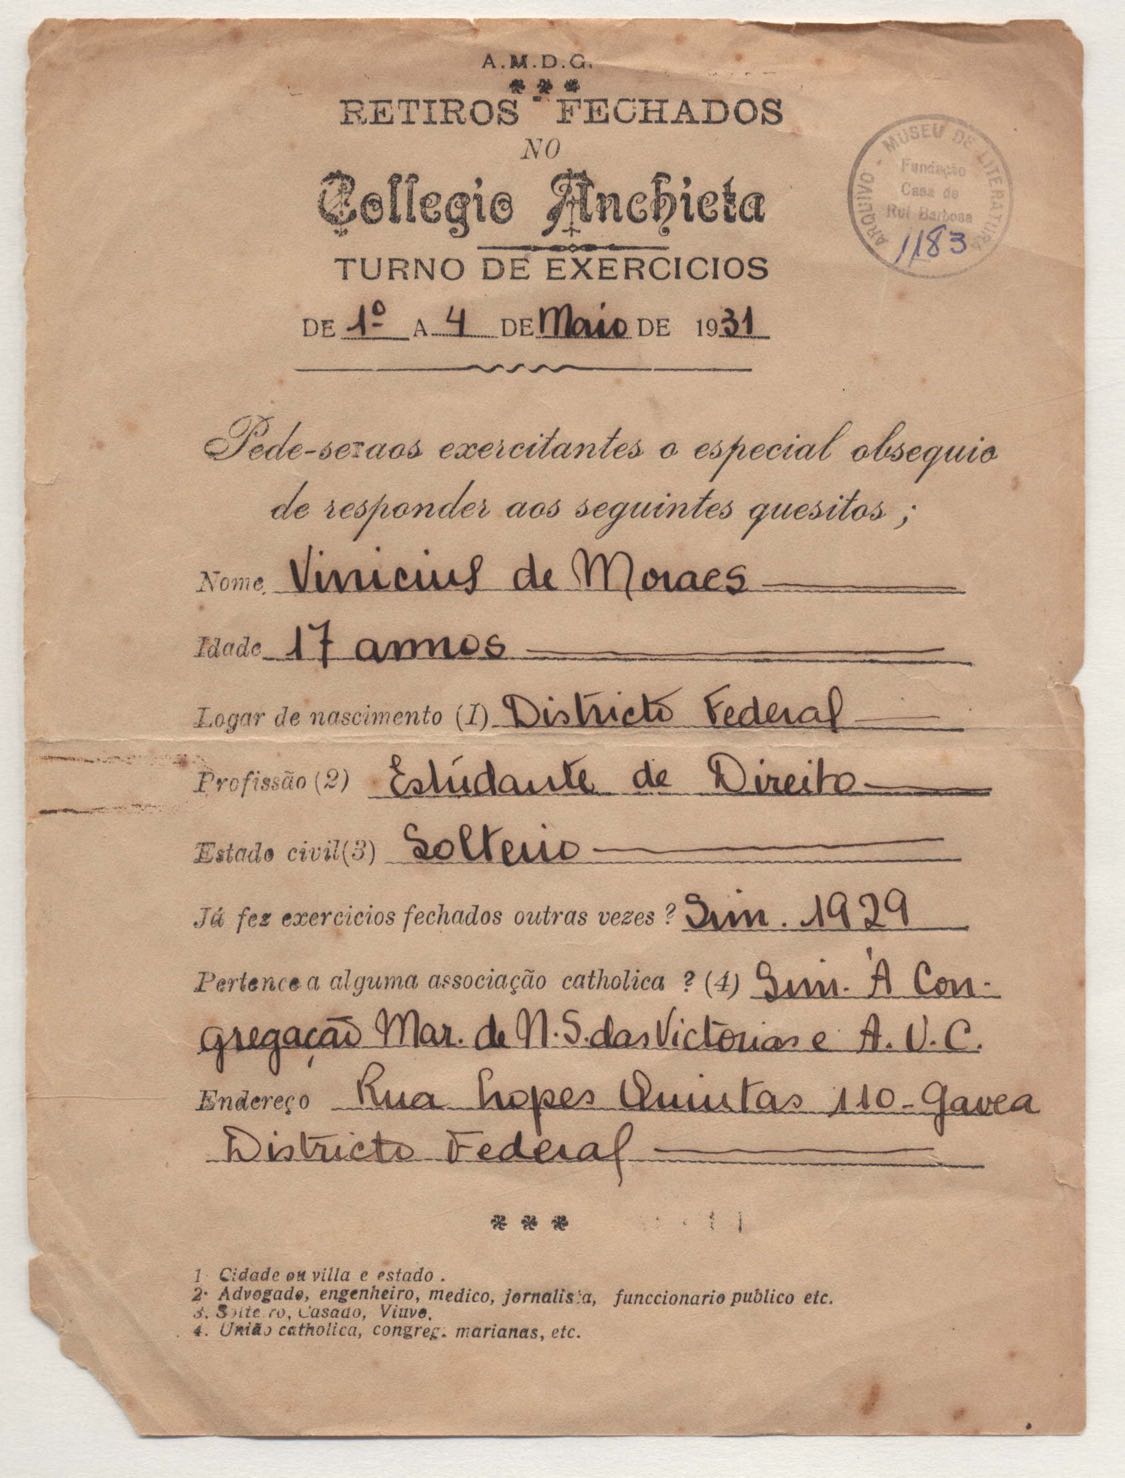 A.M.D.G.
RETIROS FECHADOS
NO
Collegio Anchieta
TURNO DE EXERCICIOS
DE 1º A 4 DE Maio DE 1931
ARQUIVO - MUSEU DE LITERATURA
Fundação
Casa de
Rui Barbosa
1183
Pede-se aos exercitantes o especial obsequio
de responder aos seguintes quesitos ;
Nome Vinicius de Moraes
Idade 17 annos
Logar de nascimento (1) Districto Federal
Profissão (2) Estudante de Direito
Estado civil (3) Solteiro
Já fez exercicios fechados outras vezes ? Sim. 1929
Pertence a alguma associação catholica ? (4) Sim. À Con-
gregação Mar. de N. S. das Victorias e A. U. C.
Endereço Rua Lopes Quintas 110 - Gavea
Districto Federal
1 Cidade ou villa e estado .
2. Advogado, engenheiro, medico, jornalista, funccionario publico etc.
3. Solteiro, Casado, Viuvo.
4. União catholica, congreg. marianas, etc.